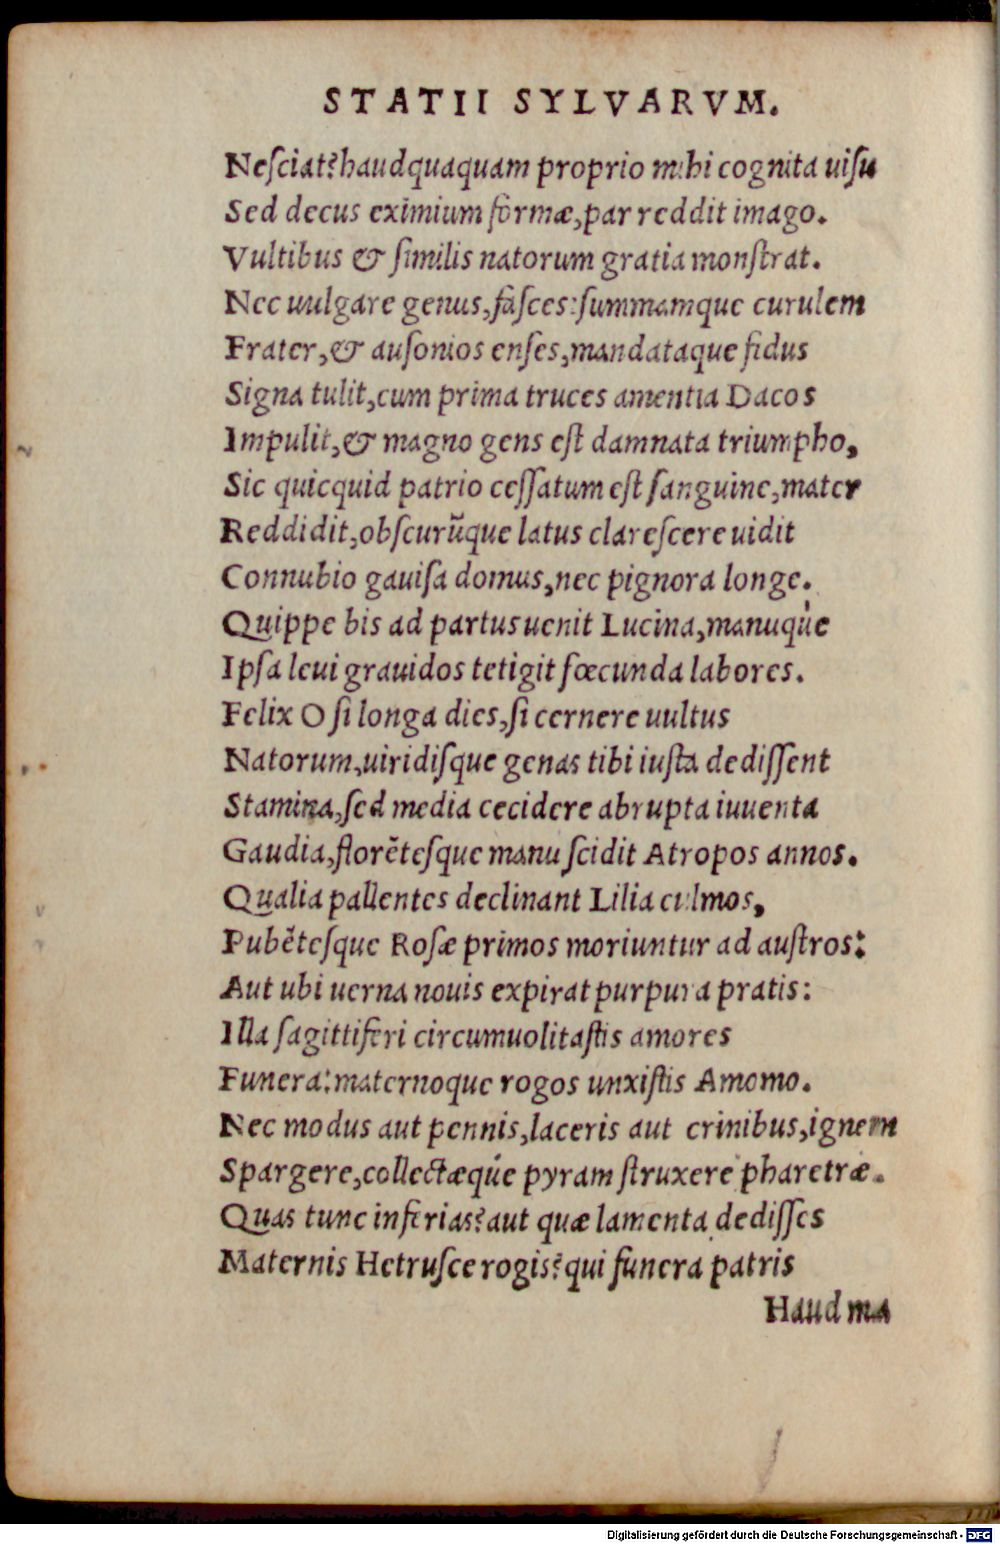 STATII SYLVARVM.
Neſciat?haudquaquam proprio mihi cognita uiſu
Sed decus eximium formæ,par reddit imago.
Vultibus & ſimilis natorum gratia monſtrat.
Nec uulgare genus,faſces:ſummamque curulem
Frater,& auſonios enſes,mandataque fidus
Signa tulit,cum prima truces amentia Dacos
Impulit,& magno gens eſt damnata triumpho,
Sic quicquid patrio ceſſatum eſt ſanguine,mater
Reddidit,obſcurũque latus clareſcere uidit
Connubio gauiſa domus,nec pignora longe.
Quippe bis ad partus uenit Lucina,manuq́ue
Ipſa leui grauidos tetigit fœcunda labores.
Felix O ſi longa dies,ſi cernere uultus
Natorum,uiridiſque genas tibi iuſta dediſſent
Stamina,ſed media cecidere abrupta iuuenta
Gaudia,florẽteſque manu ſcidit Atropos annos.
Qualia pallentes declinant Lilia culmos,
Pubẽteſque Roſæ primos moriuntur ad auſtros:
Aut ubi uerna nouis expirat purpura pratis:
Illa ſagittiferi circumuolitaſtis amores
Funera:maternoque rogos unxiſtis Amomo.
Nec modus aut pennis,laceris aut crinibus,ignem
Spargere,collectæq́ue pyram ſtruxere pharetræ.
Quas tunc inferias?aut quæ lamenta dediſſes
Maternis Hetruſce rogis?qui funera patris
Haud ma
Digitalisierung gefördert durch die Deutsche Forschungsgemeinschaft - DFG